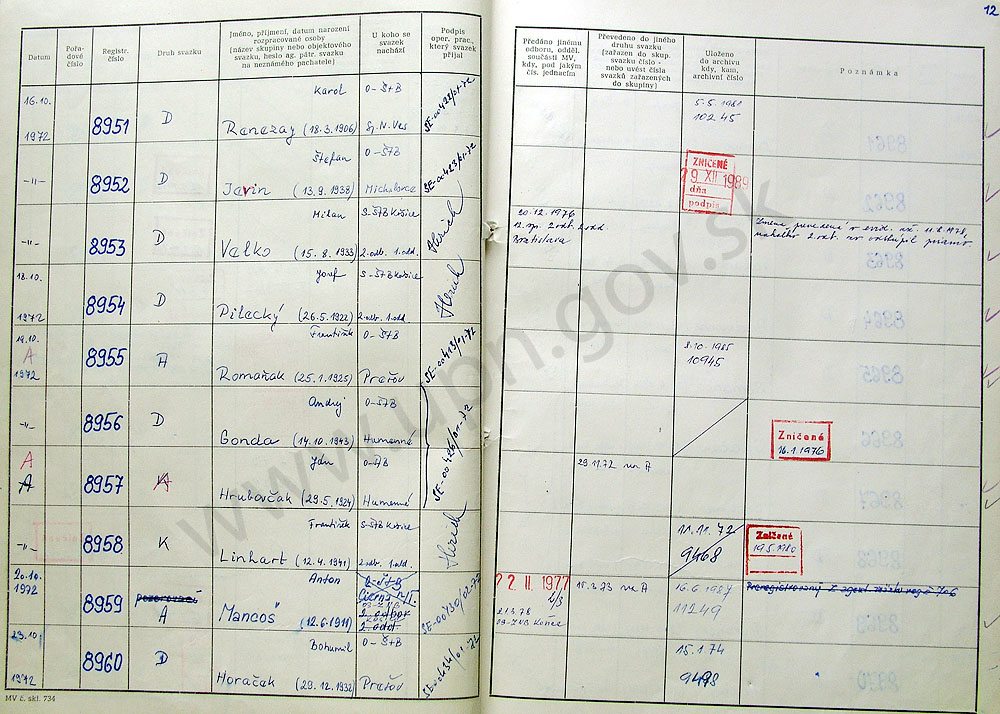 12
Datum
Pořa-
dové
číslo
Registr.
číslo
Druh svazku
Jméno, příjmení, datum narození
rozpracované osoby
(název skupiny nebo objektového
svazku, heslo ag. pátr. svazku
na neznámého pachatele)
U koho se
svazek
nachází
Podpis
oper. prac.,
který svazek
přijal
Předáno jinému
odboru, odděl.
součásti MV,
kdy, pod jakým
čís. jednacím
Převedeno do jiného
druhu svazku
(zařazen do skup.
svazku číslo -
nebo uvést čísla
svazků zařazených
do skupiny)
Uloženo
do archivu
kdy, kam,
archivní číslo
Poznámka
16.10.
1972
8951
D
Karol
Renczay (18.3.1906)
O-ŠtB
Sp. N. Ves
SE-00423/01-72
5.5.1981
10245
-"-
8952
D
Štefan
Javin (13.9.1938)
O-ŠtB
Michalovce
SE-00423/01-72
ZNIČENÉ
19 XII 1989
dňa
podpis
-"-
8953
D
Milan
Valko (15.8.1933)
S-ŠTB Košice
2.odb. 1.odd.
20.12.1976
12. sp. 2.odb. 2.odd.
Bratislava
18.10.
1972
8954
D
Jozef
Pilecký (26.5.1922)
S-ŠTB Košice
2.odb. 1.odd.
19.10.
A
1972
8955
A
František
Romaňak (25.1.1925)
O-ŠTB
Prešov
SE-00413/01-72
8.10.1985
10945
-"-
8956
D
Andrej
Gonda (14.10.1943)
O-ŠtB
Humenné
SE-00426/01-72
Zničené
16.1.1976
A
A
8957
Ján
Hrubovčak (29.5.1924)
O-ŠtB
Humenné
29.11.72 na A
-"-
8958
K
František
Linhart (12.4.1941)
S-ŠTB Košice
2.odb. 1.odd.
11.11.72
9468
Zničené
19.5.1980
20.10.
1972
8959
A
Anton
Mancoš (12.6.1911)
2. odbor
2. odd.
SE-00430/02-72
22 II 1977
21.3.78
09-ZNB Košice
15.3.73 na A
16.6.1987
11249
23.10.
1972
8960
D
Bohumil
Horačak (29.12.1932)
O-ŠtB
Prešov
SE-00434/01-72
15.1.74
9498
MV č. skl. 734
www.upn.gov.sk